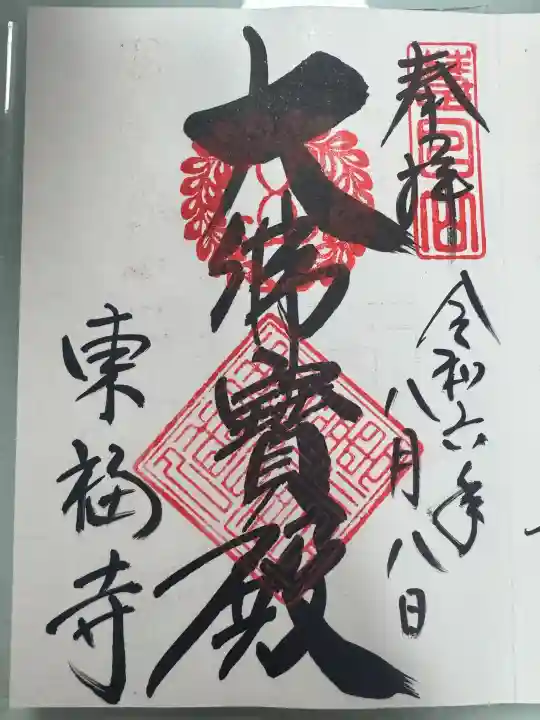 奉拝
令和六年
八月八日
大佛寳殿
東福寺